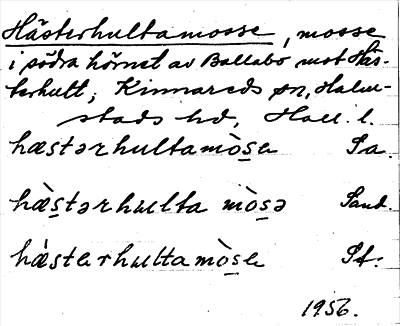 Hästerhultamosse, mosse
i södra hörnet av Ballabo mot Häs-
terhult; Kinnareds sn, Halm-
stads hd, Hall. l.
hæstərhultamòsa Sa.
hæ̀stərhulta mòsə Sand.
hæ̀starhultamòsa Sf.
1956.